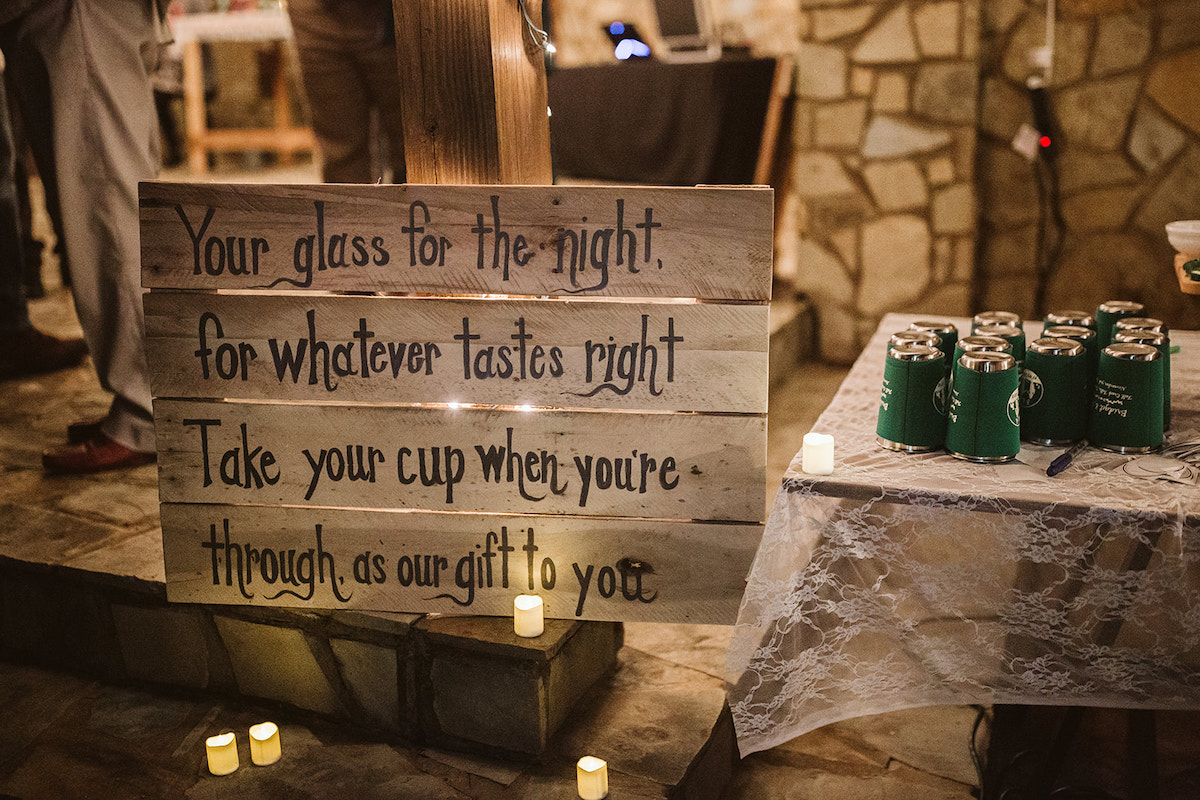 Your glass for the night,
for whatever tastes right
Take your cup when you're
through, as our gift to you